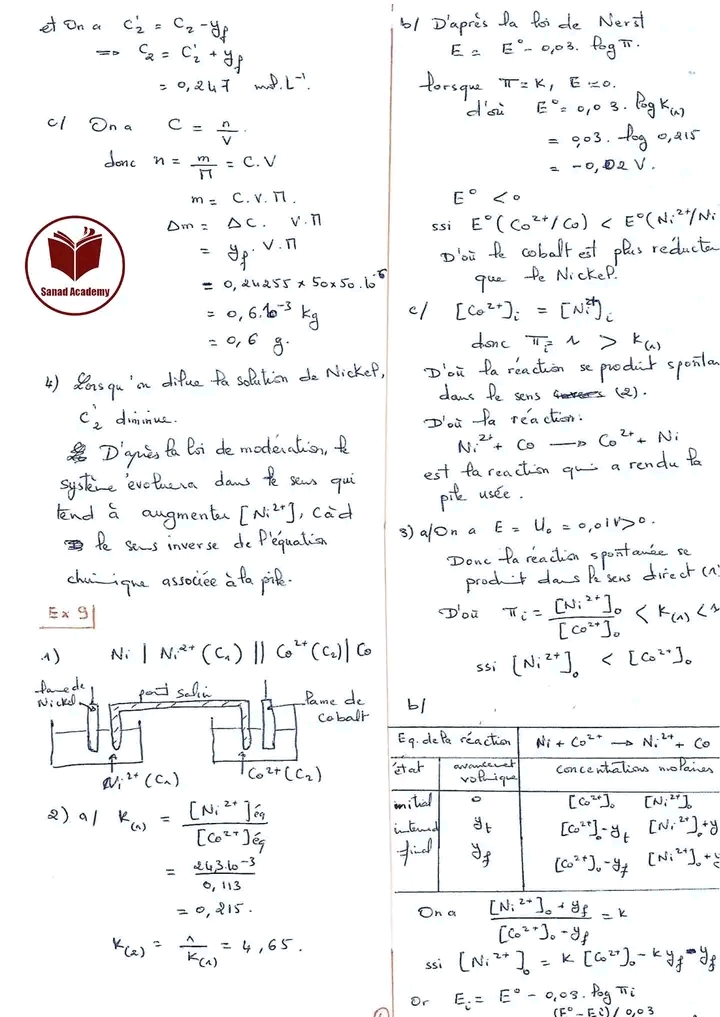 et On a C'₂ = C₂ - y_f
⟹ C₂ = C'₂ + y_f
= 0,247 mol.L⁻¹.
c/ On a C = n/V.
donc n = m/M = C.V
m = C.V.M.
Δm = ΔC. V.M
= y_f. V.M
= 0,24255 × 50 × 50.10⁻⁶
= 0,6.10⁻³ kg
= 0,6 g.
Sanad Academy
4) Lorsqu'on dilue la solution de Nickel,
C'₂ diminue.
D'après la loi de modération, le
système évoluera dans le sens qui
tend à augmenter [Ni²⁺], càd
le sens inverse de l'équation
chimique associée à la pile.
Ex 9
1) Ni | Ni²⁺ (C₁) || Co²⁺ (C₂) | Co
lame de Nickel
pont salin
lame de cobalt
Ni²⁺ (C₁)
Co²⁺ (C₂)
2) a/ K₍₁₎ = [Ni²⁺]éq / [Co²⁺]éq
= 24,3.10⁻³ / 0,113
= 0,215.
K₍₂₎ = 1/K₍₁₎ = 4,65.
b/ D'après la loi de Nerst
E = E° - 0,03. log π.
lorsque π = K, E = 0.
d'où E° = 0,03. log K₍₁₎
= 0,03. log 0,215
= -0,02 V.
E° < 0
ssi E°(Co²⁺/Co) < E°(Ni²⁺/Ni
D'où le cobalt est plus réducte
que le Nickel.
c/ [Co²⁺]ᵢ = [Ni²⁺]ᵢ
donc πᵢ = 1 > K₍₁₎
D'où la réaction se produit spontan
dans le sens (2).
D'où la réaction:
Ni²⁺ + Co ⟶ Co²⁺ + Ni
est la reaction qui a rendu la
pile usée.
3) a/ On a E = U₀ = 0,01V > 0.
Donc la réaction spontanée se
produit dans le sens direct (1)
D'où πᵢ = [Ni²⁺]₀ / [Co²⁺]₀ < K₍₁₎ < 1
ssi [Ni²⁺]₀ < [Co²⁺]₀
b/
Eq. de la réaction Ni + Co²⁺ ⟶ Ni²⁺ + Co
état avancement volumique concentrations molaires
initial 0 [Co²⁺]₀ [Ni²⁺]₀
intermed y_t [Co²⁺]₀ - y_t [Ni²⁺]₀ + y
final y_f [Co²⁺]₀ - y_f [Ni²⁺]₀ + y
On a ([Ni²⁺]₀ + y_f) / ([Co²⁺]₀ - y_f) = K
ssi [Ni²⁺]₀ = K [Co²⁺]₀ - K y_f - y_f
Or Eᵢ = E° - 0,03. log πᵢ
(E° - Eᵢ) / 0,03